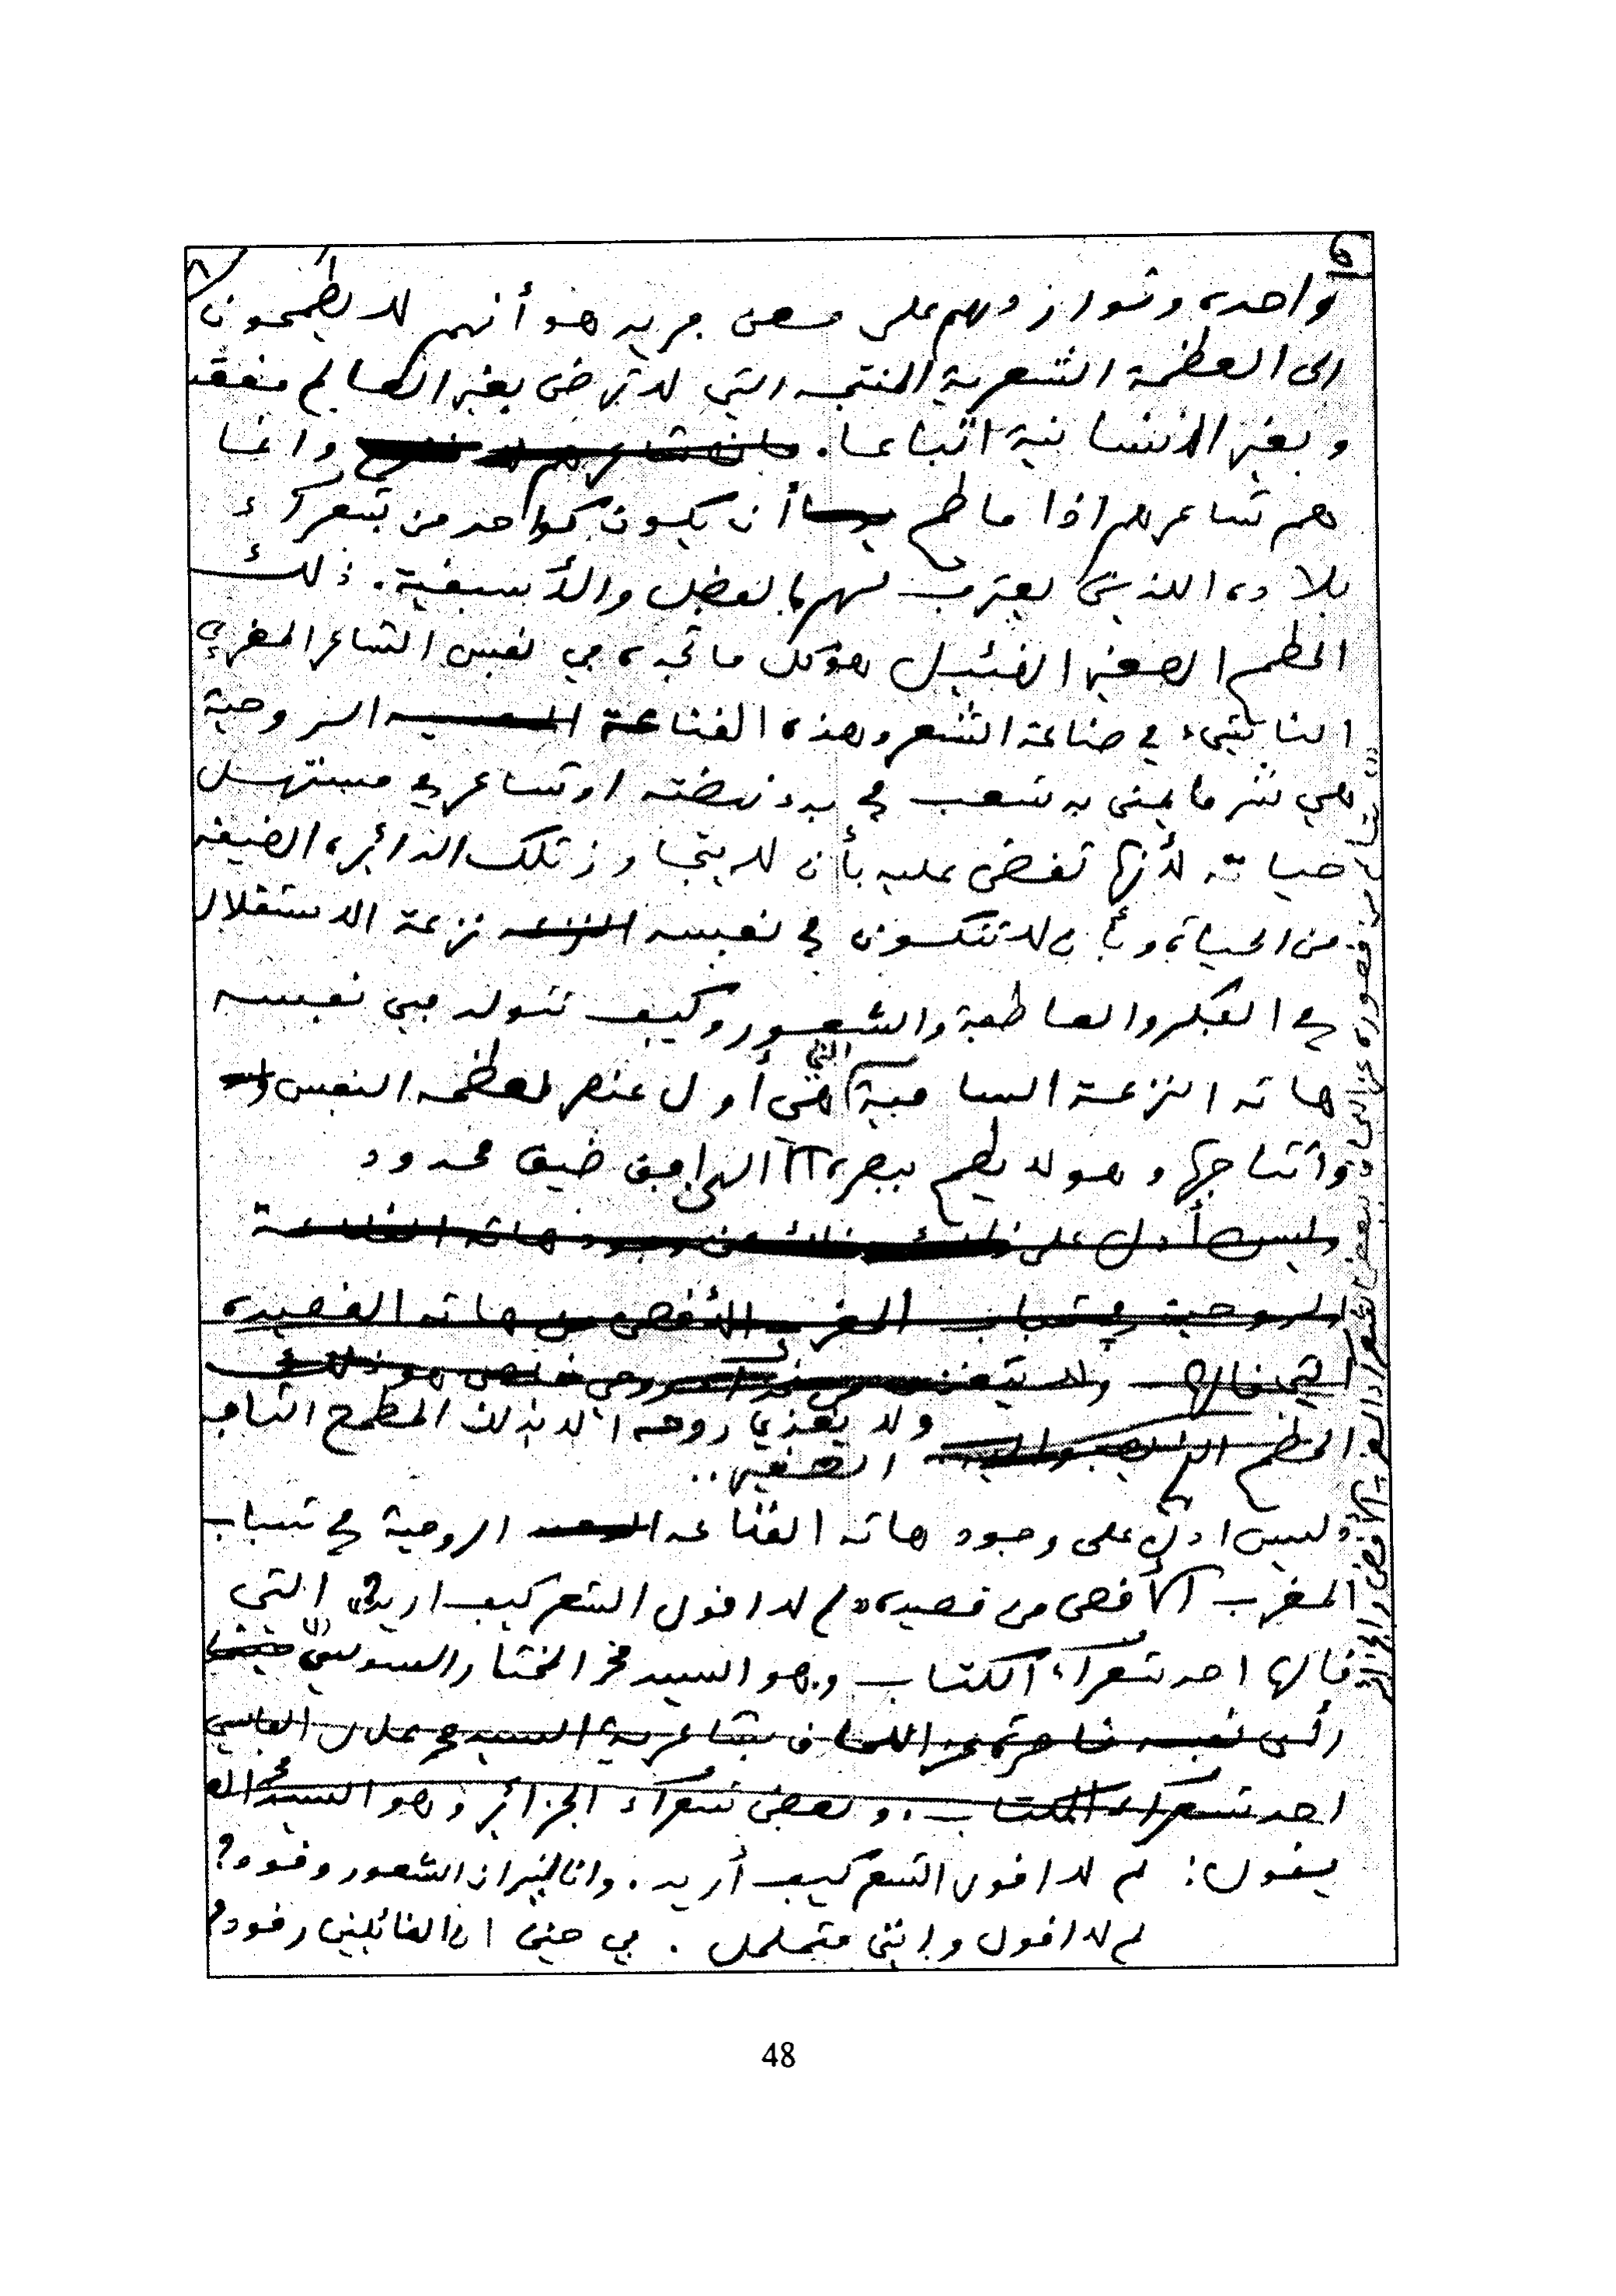 6
٨
واحدة وتواردهم على معنى فريد هو أنهم لا يطمحون
الى العظمة الشعرية المنتجة التي لا ترضى بغير العالم
وبغير الإنسانية اتباعا. وانما
هم شاعرهم اذا ما طمح أن يكون كواحد من شعراء
بلاده الذين يعترف لهم بالفضل والأسبقية. ذلك
المطمح الصغير الضئيل هو كل ما تجده في نفس الشاعر المغربي
الناشىء في صناعة الشعر وهذه القناعة الروحية
هي شر ما يمنى به شعب في بدء نهضته او شاعر في مستهل
حياته لأنها تقضي عليه بأن لا يتجاوز تلك الدائرة الضيقة
من الحياة وبأن لا تتكون في نفسه نزعة الاستقلال
في الفكر والعاطفة والشعور وكيف تتولد في نفسه
هاته النزعة السامية التي هي أول عنصر لعظمة النفس
وانتاجها وهو لا يطمح ببصره الا الى افق ضيق محدود
وليس أدل على ذلك من وجود هاته القناعة
الروحية في شباب المغرب الأقصى من هاته القصيدة
التي قالها
ولا يغذي روحه الا بذلك المطمح التافه
المطمح
الصغير..
وليس ادل على وجود هاته القناعة الروحية في شباب
المغرب الأقصى من قصيدة "لم لا اقول الشعر كيف اريد؟" التي
قالها احد شعراء الكتاب وهو السيد محمد المختار السوسي
رأى نفسه قاصرة عن اللحاق بشاعرية السيد محمد علال الفاسي
احد شعراء الكتاب. وبعض شعراء الجزائر وهو السيد محمد
يقول: لم لا اقول الشعر كيف أريد. وانا لنيران الشعور وقود؟
لم لا اقول وإنني متململ. في حين ان القائلين رقود؟
قصوره عن اللحاق ببعض شعراء المغرب الأقصى والجزائر
48